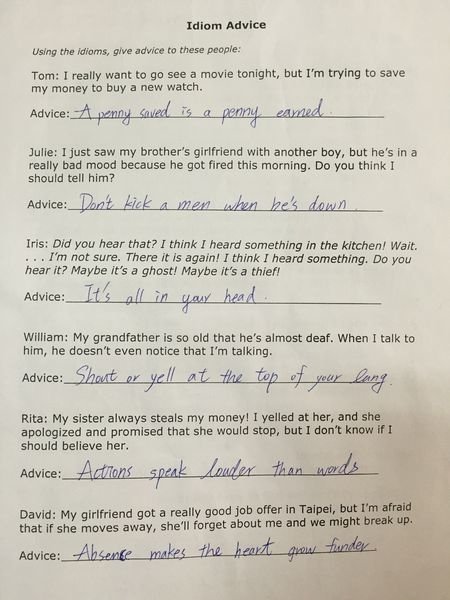 Idiom Advice
Using the idioms, give advice to these people:
Tom: I really want to go see a movie tonight, but I'm trying to save
my money to buy a new watch.
Advice: A penny saved is a penny earned.
Julie: I just saw my brother's girlfriend with another boy, but he's in a
really bad mood because he got fired this morning. Do you think I
should tell him?
Advice: Don't kick a men when he's down.
Iris: Did you hear that? I think I heard something in the kitchen! Wait.
. . . I'm not sure. There it is again! I think I heard something. Do you
hear it? Maybe it's a ghost! Maybe it's a thief!
Advice: It's all in your head.
William: My grandfather is so old that he's almost deaf. When I talk to
him, he doesn't even notice that I'm talking.
Advice: Shout or yell at the top of your lang.
Rita: My sister always steals my money! I yelled at her, and she
apologized and promised that she would stop, but I don't know if I
should believe her.
Advice: Actions speak louder than words
David: My girlfriend got a really good job offer in Taipei, but I'm afraid
that if she moves away, she'll forget about me and we might break up.
Advice: Absence makes the heart grow funder.